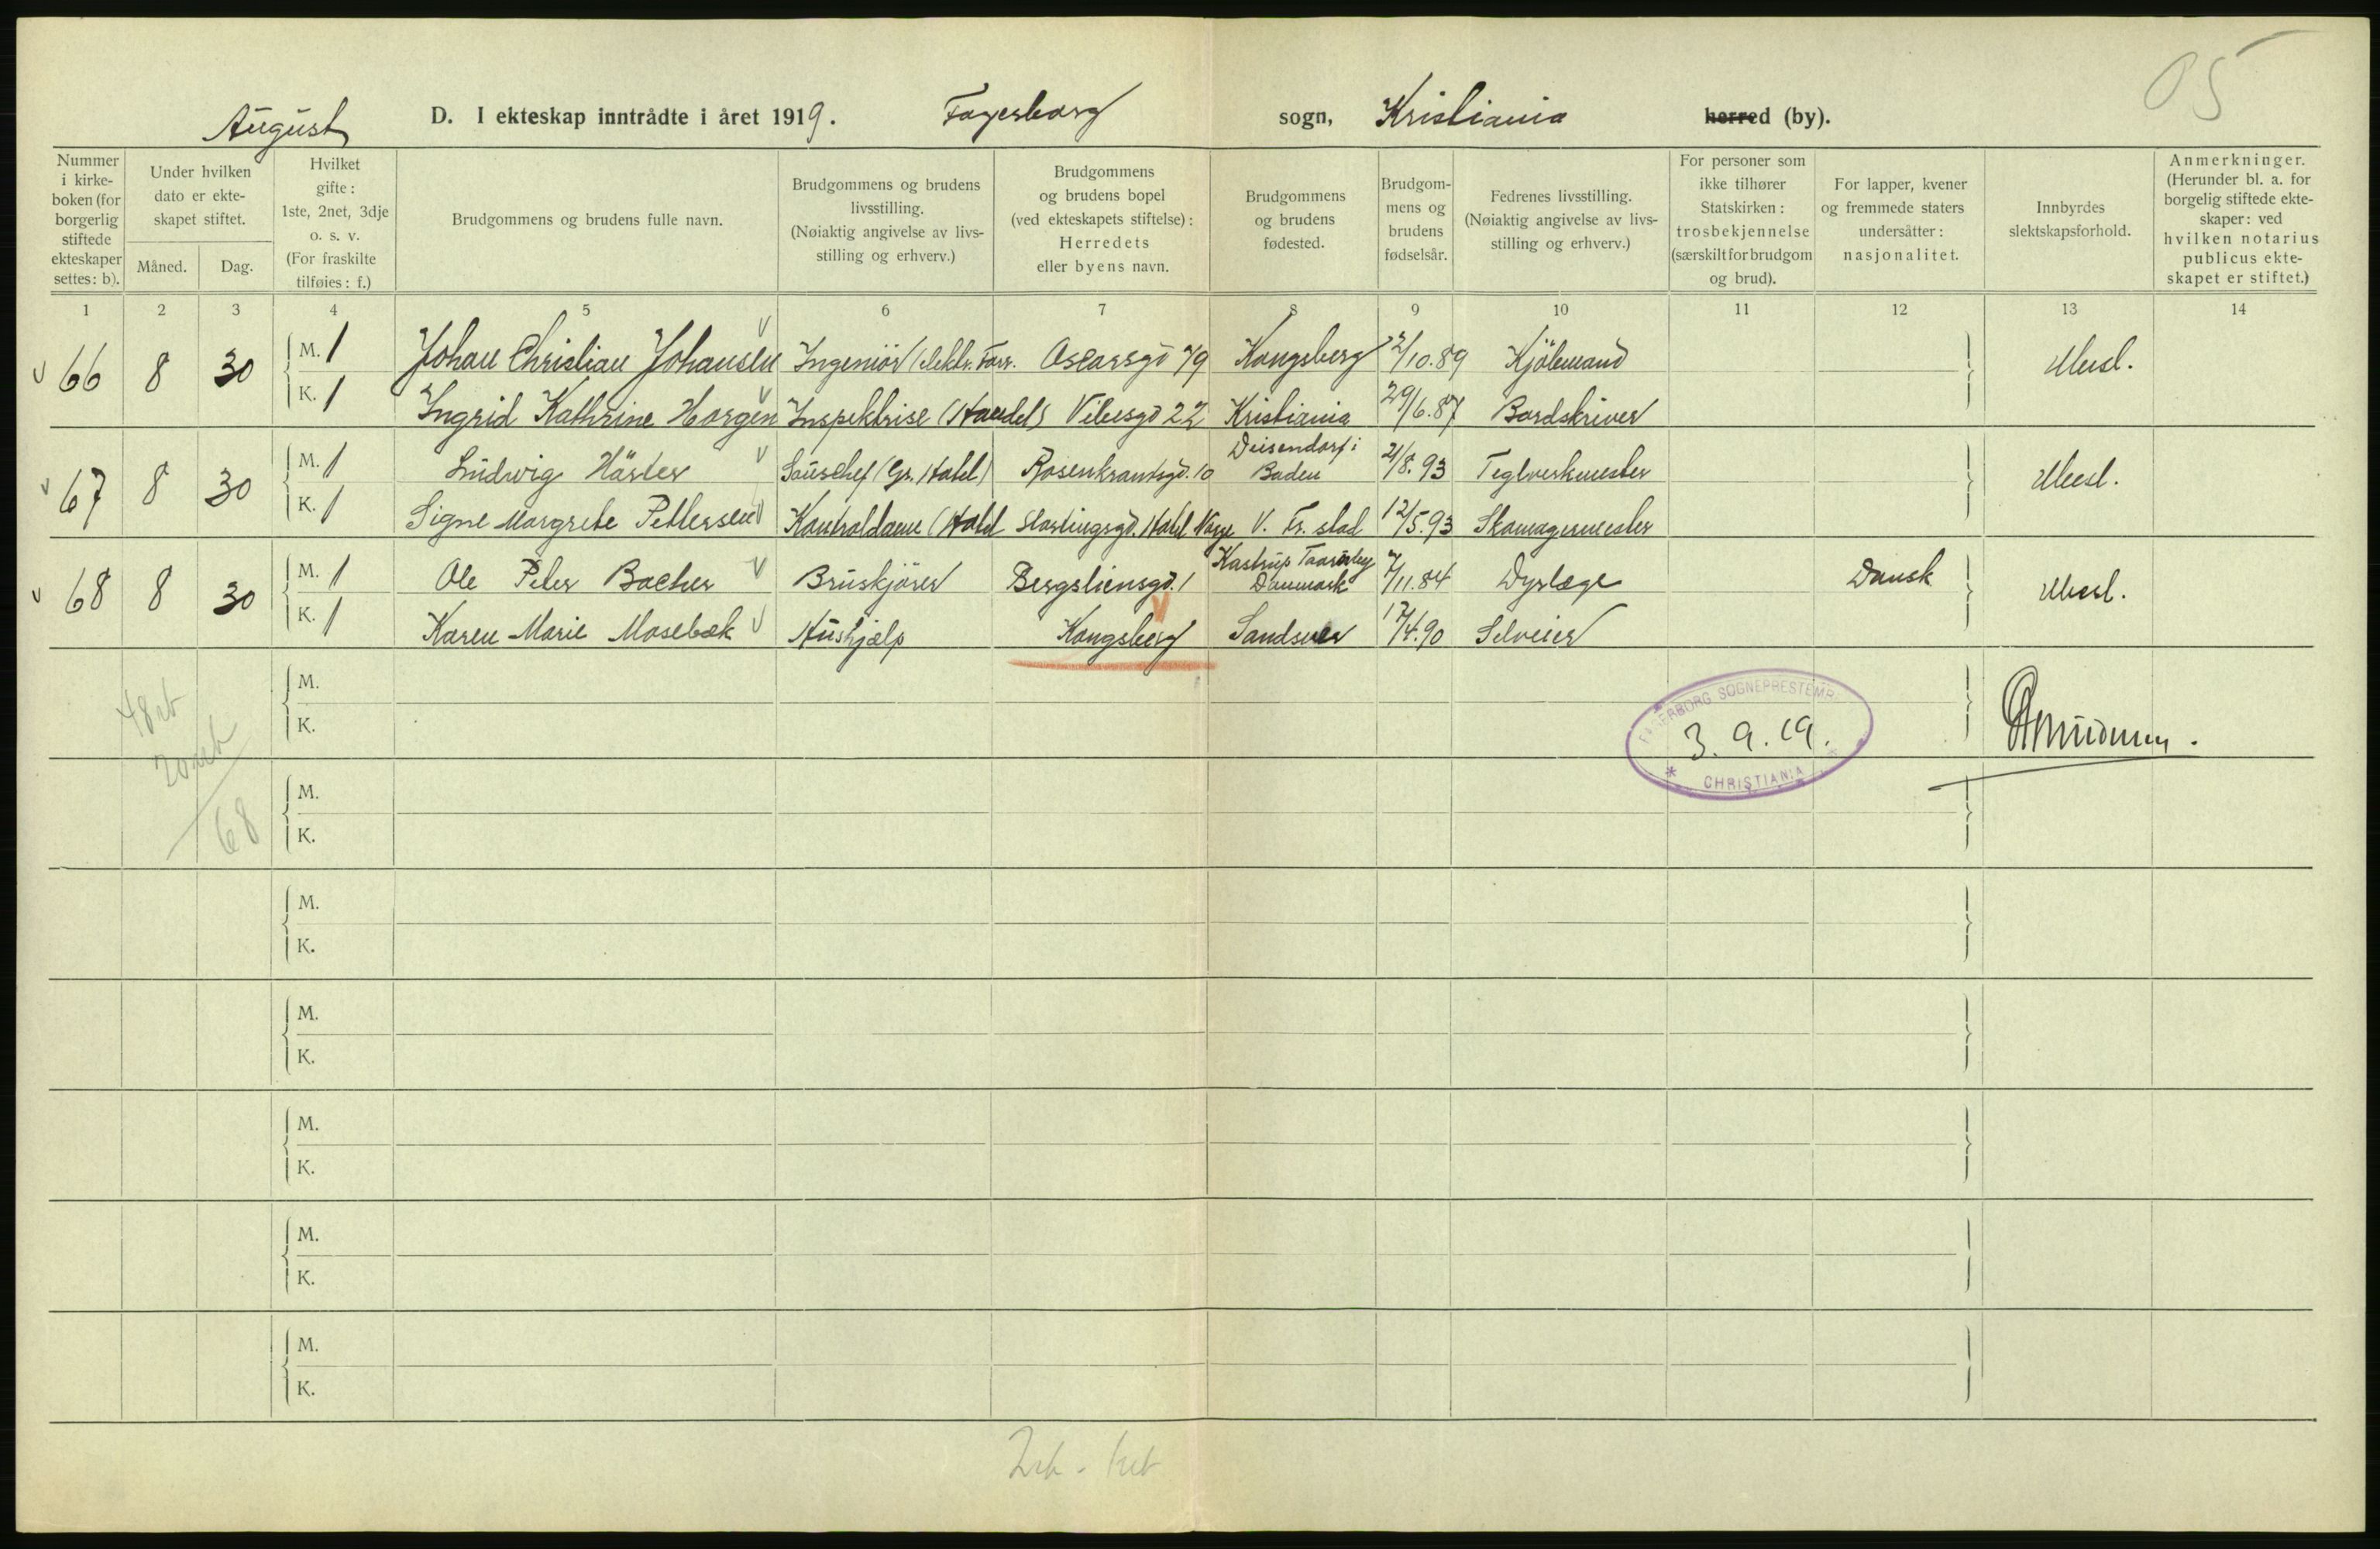 05
August D. I ekteskap inntrådte i året 1919. Fagerborg sogn, Kristiania herred (by).
Nummer i kirke-boken (for borgerlig stiftede ekteskaper settes: b).
Under hvilken dato er ekte-skapet stiftet.
Måned. Dag.
Hvilket gifte: 1ste, 2net, 3dje o. s. v. (For fraskilte tilføies: f.)
Brudgommens og brudens fulle navn.
Brudgommens og brudens livsstilling. (Nøiaktig angivelse av livs-stilling og erhverv.)
Brudgommens og brudens bopel (ved ekteskapets stiftelse): Herredets eller byens navn.
Brudgommens og brudens fødested.
Brudgom-mens og brudens fødselsår.
Fedrenes livsstilling. (Nøiaktig angivelse av livs-stilling og erhverv.)
For personer som ikke tilhører Statskirken: trosbekjennelse (særskilt for brudgom og brud).
For lapper, kvener og fremmede staters undersåtter: nasjonalitet.
Innbyrdes slektskapsforhold.
Anmerkninger. (Herunder bl. a. for borgelig stiftede ekte-skaper: ved hvilken notarius publicus ekte-skapet er stiftet.)
1 2 3 4 5 6 7 8 9 10 11 12 13 14
v 66 8 30 M. 1 Johan Christian Johansen v Ingeniör (elektr. Forr. Oscarsgd 79 Kongsberg 2/10.89 Kjölemand Ubesl.
K. 1 Ingrid Kathrine Horgen v Inspektrise (Handel) Vibesgd 22 Kristiania 29/6.87 Bordskriver
v 67 8 30 M. 1 Ludwig Härter v Sauschef (Gr. Hotel) Rosenkrantsgd. 10 Deisendorf i Baden 21/8.93 Teglverkmester Ubesl.
K. 1 Signe Margrete Pettersen v Kontroldame (Hotel Stortingsgd. Hotel Norge V. Fr. stad 12/5.93 Skomagermester
v 68 8 30 M. 1 Ole Peter Bacher v Bruskjörer Bergsliensgd. 1 Kastrup Taarnby Danmark 7/11.84 Dyrlæge Dansk Ubesl.
K. 1 Karen Marie Mosebæk v Hushjælp Kongsberg Sandsver 17/4.90 Selveier
M.
K.
FAGERBORG SOGNEPRESTEMB
3.9.19.
* CHRISTIANIA *
48
20
68
M.
K.
M.
K.
M.
K.
M.
K.
M.
K.
M.
K.